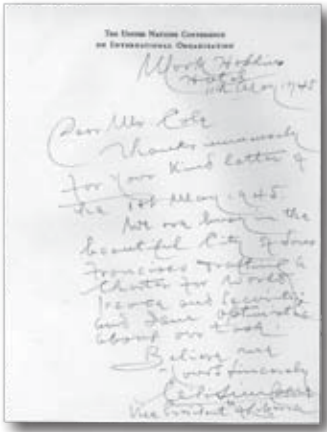 THE UNITED NATIONS CONFERENCE
ON INTERNATIONAL ORGANIZATION
Mark Hopkins
Hotel
May, 1945
Dear Mr. Cole
Thanks immensely
for your kind letter of
the 1st May, 1945.
We are busy in the
beautiful City of San
Francisco drafting a
Charter for World
Peace and Security
and I am optimistic
about our task.
Believe me
Yours Sincerely
Vice President of Liberia